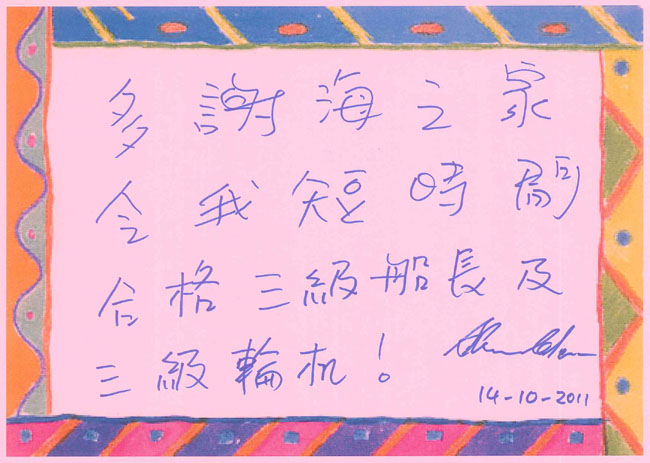 多謝海之家
令我短時間
合格三級船長及
三級輪机！
14-10-2011